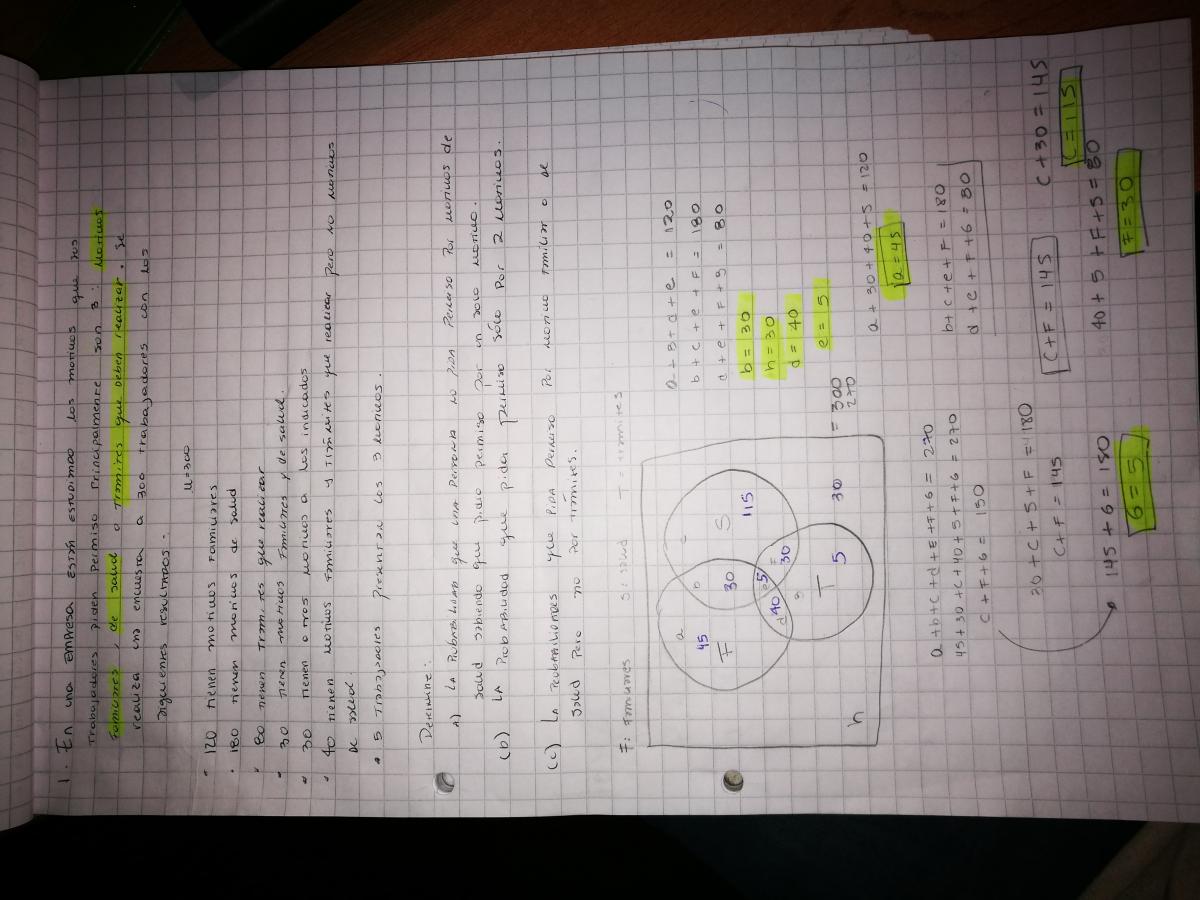 1. En una empresa están estudiando los motivos que los
Trabajadores piden Permiso Principalmente son 3: Motivos
Familiares, de salud o Tramites que deben realizar. Se
realiza una encuesta a 300 trabajadores con los
siguientes resultados:
u=300
• 120 tienen motivos Familiares
• 180 tienen motivos de salud
• 80 tienen Tramites que realizar
• 30 tienen motivos Familiares y de salud.
• 30 tienen otros motivos a los indicados
• 40 tienen motivos Familiares y Tramites que realizar pero no motivos
de salud.
• 5 Trabajadores Presentan los 3 motivos.
Determine:
A) La Probabilidad que una Persona no pida Permiso Por motivos de
salud sabiendo que pidio permiso por un solo motivo.
(b) La Probabilidad que pida permiso sólo Por 2 motivos.
(c) La Probabilidades que pida Permiso Por motivo Familiar o de
salud Pero no por Trámites.
F: Familiares S: salud T= tramites
a
F
45
b
30
c
S
115
d
40
e
5
F
30
g
T
5
h
30
= 300
270
a+b+d+e = 120
b+c+e+F = 180
d+e+F+g = 80
b = 30
h = 30
d = 40
e = 5
a+30+40+5 = 120
a = 45
a+b+c+d+e+F+6 = 270
45+30+c+40+5+F+6 = 270
c+F+6 = 150
b+c+e+F = 180
d+e+F+6 = 80
30+c+5+F = 180
c+F = 145
C+F = 145
C+30 = 145
C = 115
145+6 = 150
6 = 5
40+5+F+5 = 80
F = 30